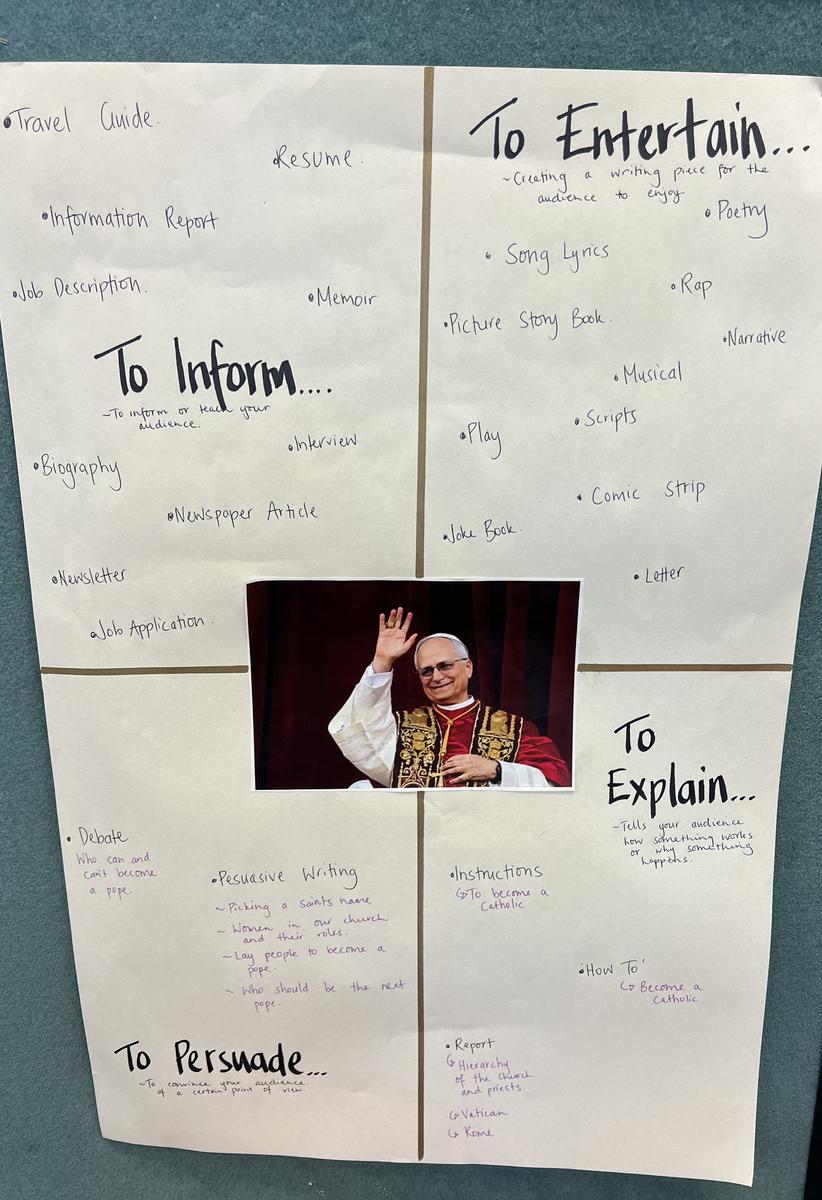 •Travel Guide.
•Resume.
•Information Report
•Job Description.
•Memoir
To Inform....
~To inform or teach your
audience.
•Interview
•Biography
•Newspaper Article
•Newsletter
•Job Application.
To Entertain...
~Creating a writing piece for the
audience to enjoy
•Poetry
•Song Lyrics
•Rap
•Picture Story Book.
•Narrative
•Musical
•Scripts
•Play
•Comic Strip
•Joke Book.
•Letter
•Debate
Who can and
can't become
a pope.
•Pesuasive Writing
~Picking a saints name
~Women in our church
and their roles.
~Lay people to become a
pope.
~Who should be the next
pope.
To Persuade...
~To convince your audience
of a certain point of view.
To
Explain...
~Tells your audience
how something works
or why something
happens.
•Instructions
↳To become a
Catholic
•'How To'
↳Become a
Catholic
•Report
↳Hierarchy
of the church
and priests.
↳Vatican
↳Rome